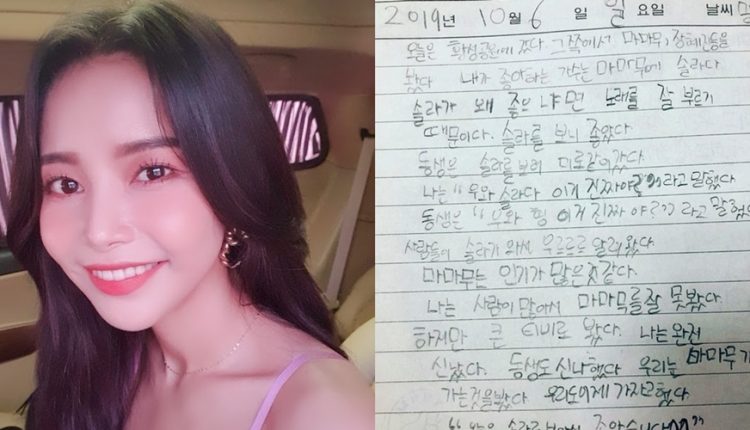 2019년 10월 6일 일요일 날씨
오늘은 황성공원에 갔다. 그쪽에서 마마무, 장혜진등을
봤다 내가 좋아하는 가수는 마마무에 솔라다.
솔라가 왜 좋으냐면 노래를 잘 부르기
때문이다. 솔라를 보니 좋았다.
동생은 솔라를 보러 미로같이갔다.
나는 "우와 솔라다 이거 진짜야?" 라고 말했다
동생은 "우와 형 이거 진짜야?? 라고 말했
사람들이 솔라가 와서 우르르르 달려왔다
마마무는 인기가 많은것같다.
나는 사람이 많아서 마마무를잘 못봤다.
하지만 큰 티비로 봤다. 나는완전
신났다. 동생도신나했다 우리는 마마무가
가는것을봤다 우리도이제 가자고했다.